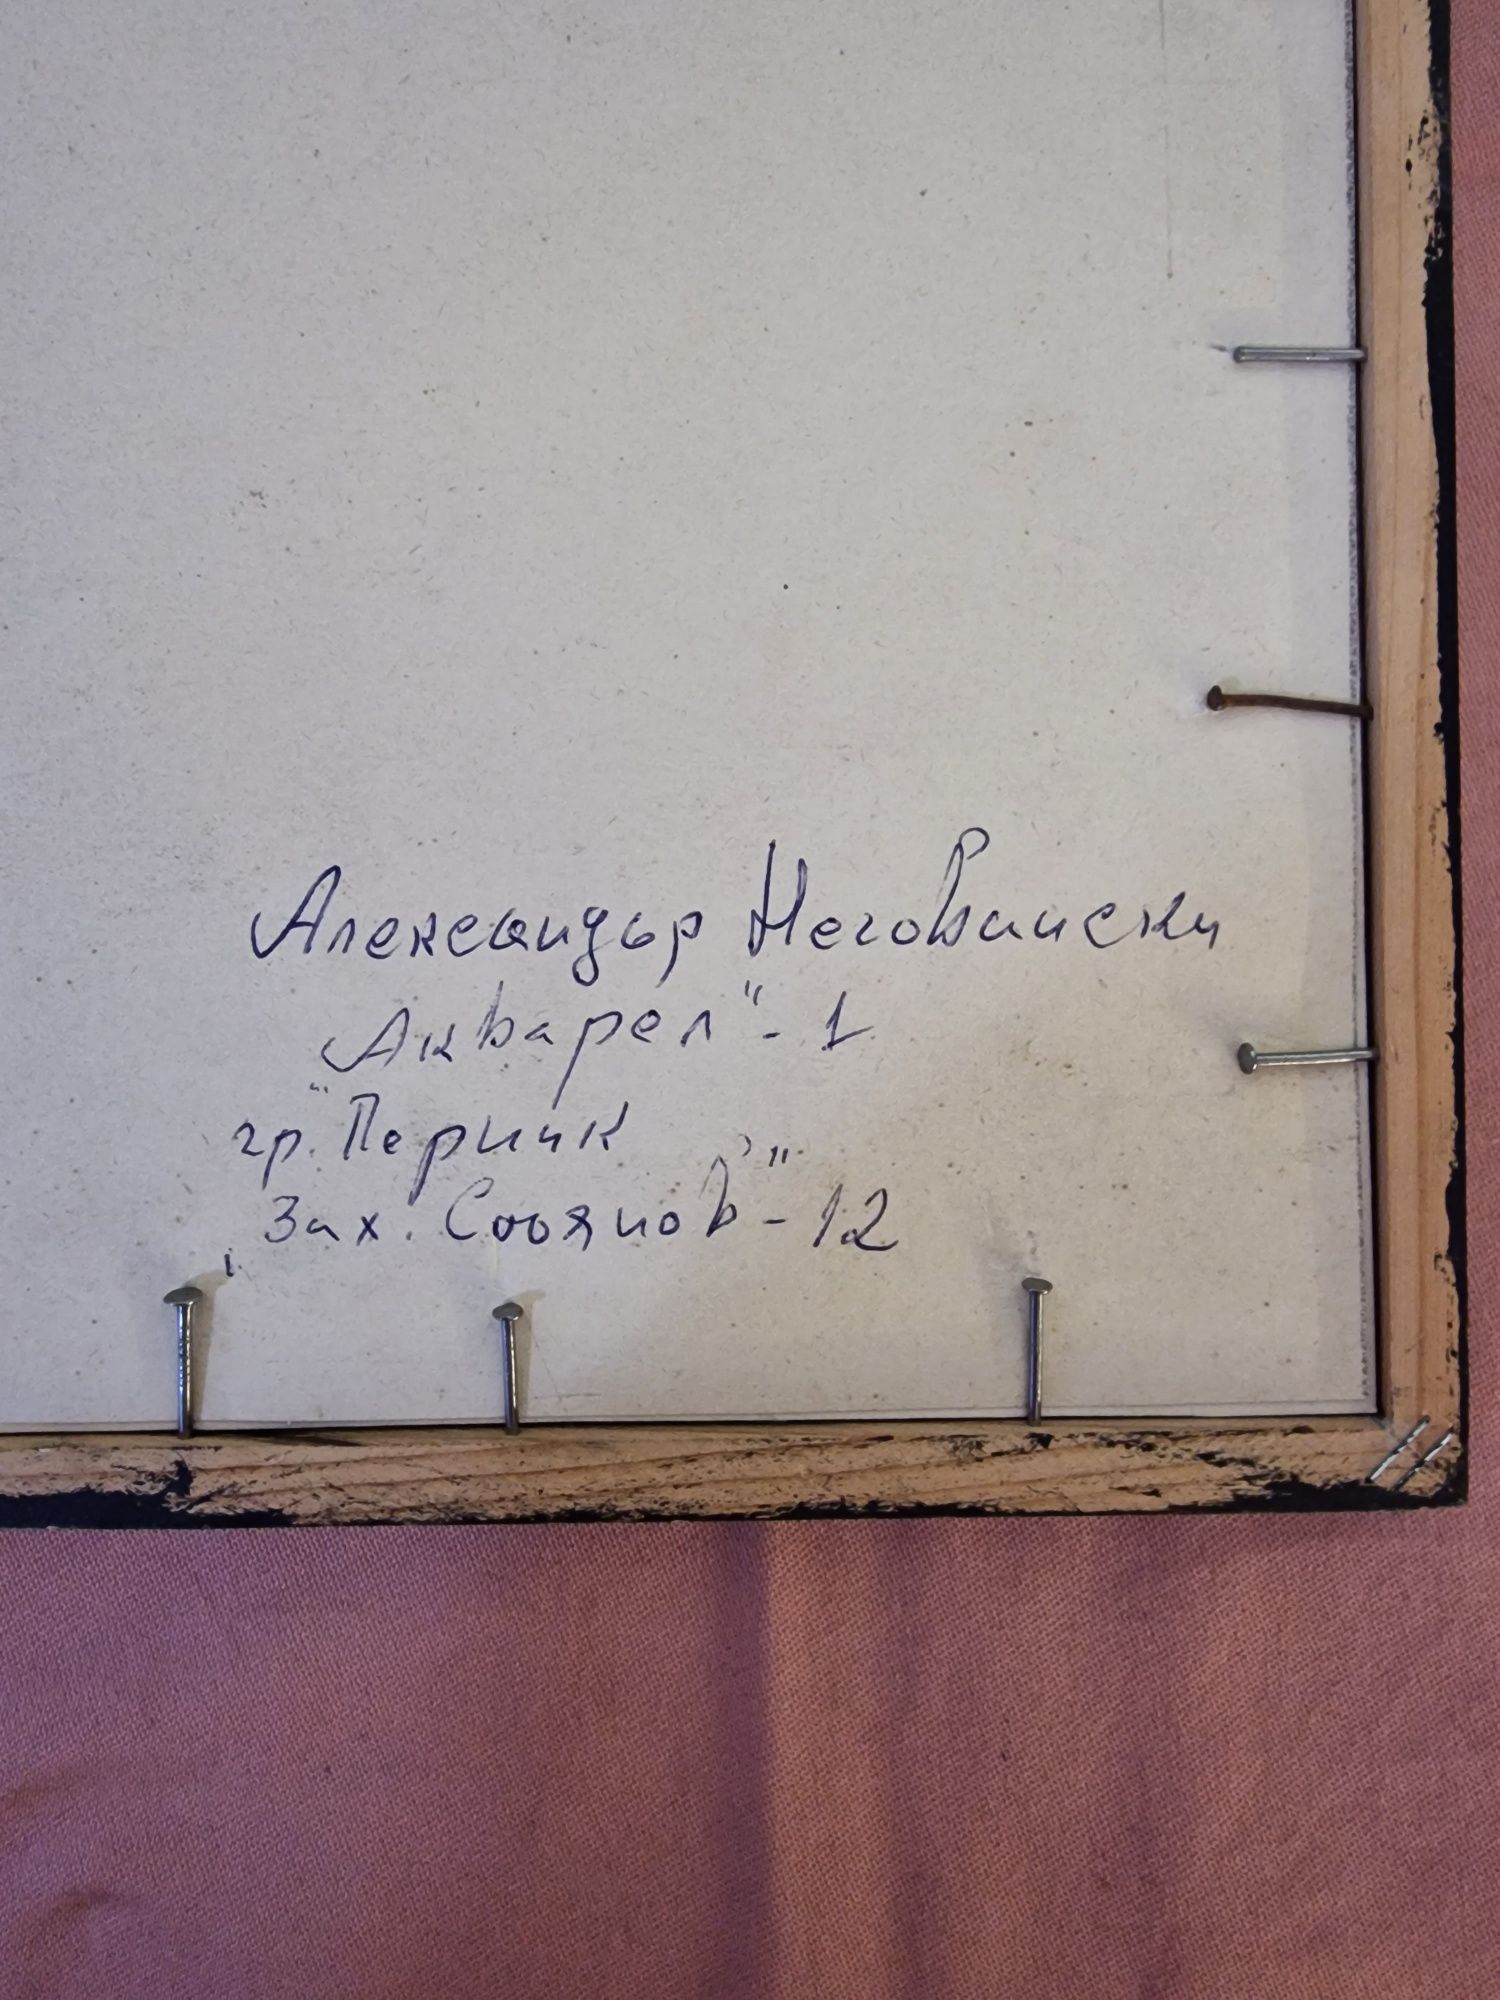 Александър Неговански
"Акварел" - 1
гр. Перник
"Зах. Стоянов" - 12